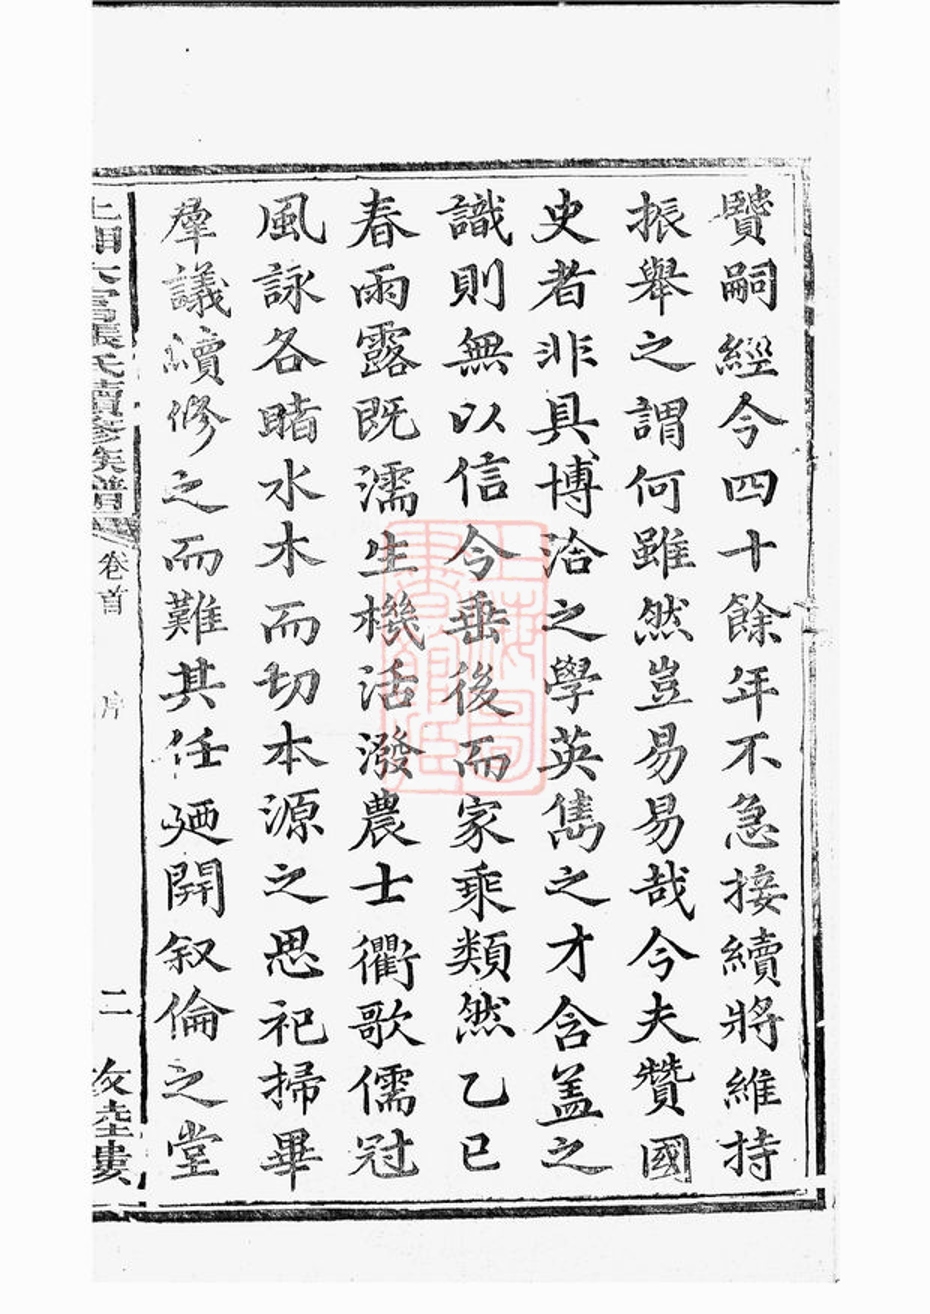 賢嗣經今四十餘年不急接續將維持
振舉之謂何雖然豈易易哉今夫贊國
史者非具博洽之學英雋之才含盖之
識則無以信今垂後而家乘類然乙巳
春雨露既濡生機活潑農士衢歌儒冠
風詠各睹水木而切本源之思祀掃畢
羣議續修之而難其任廼開叙倫之堂
上湘六官張氏續修族譜 卷首 序 二 友睦